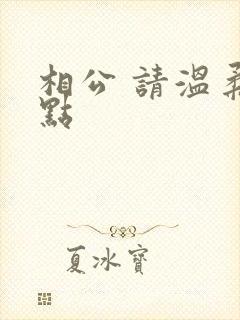 相公 請溫柔
點
夏冰寶